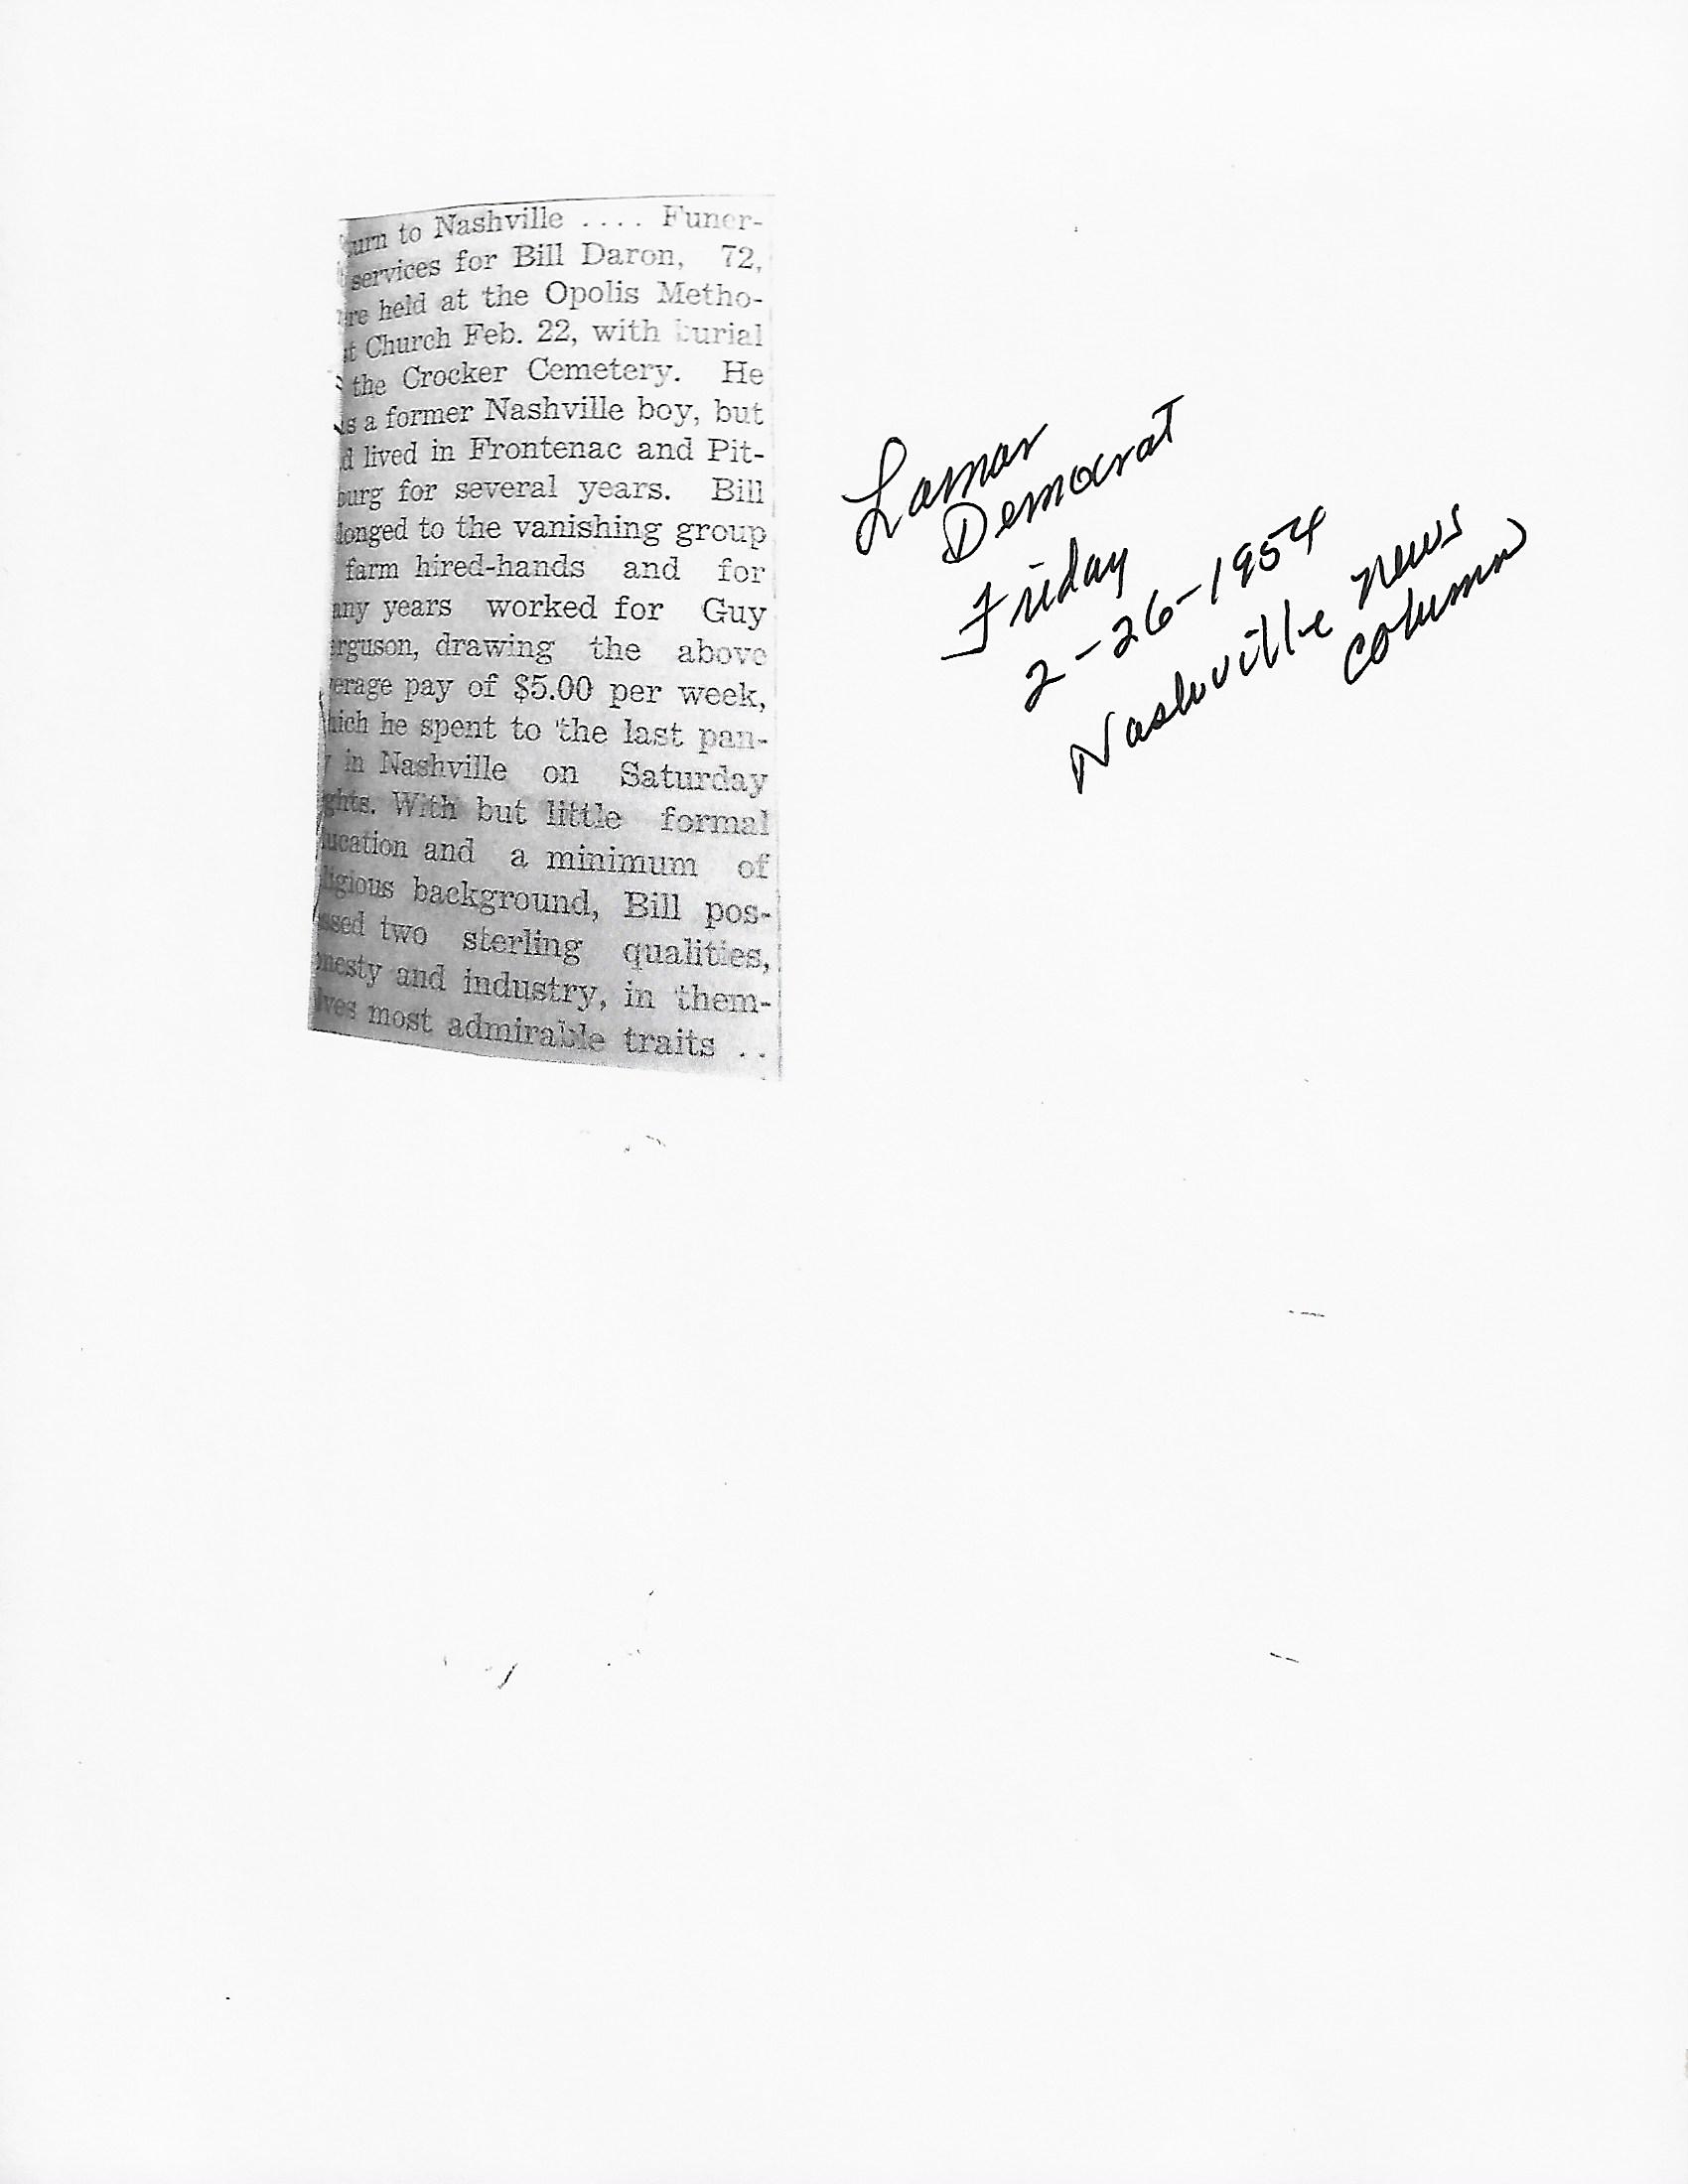 turn to Nashville .... Funer-
services for Bill Daron, 72,
ere held at the Opolis Metho-
st Church Feb. 22, with burial
the Crocker Cemetery. He
as a former Nashville boy, but
d lived in Frontenac and Pit-
burg for several years. Bill
longed to the vanishing group
farm hired-hands and for
any years worked for Guy
erguson, drawing the above
verage pay of $5.00 per week,
hich he spent to the last pan-
y in Nashville on Saturday
ghts. With but little formal
ucation and a minimum of
ligious background, Bill pos-
ssed two sterling qualities,
nesty and industry, in them-
lves most admirable traits ..
Lamar
Democrat
Friday
2-26-1954
Nashville News
Column